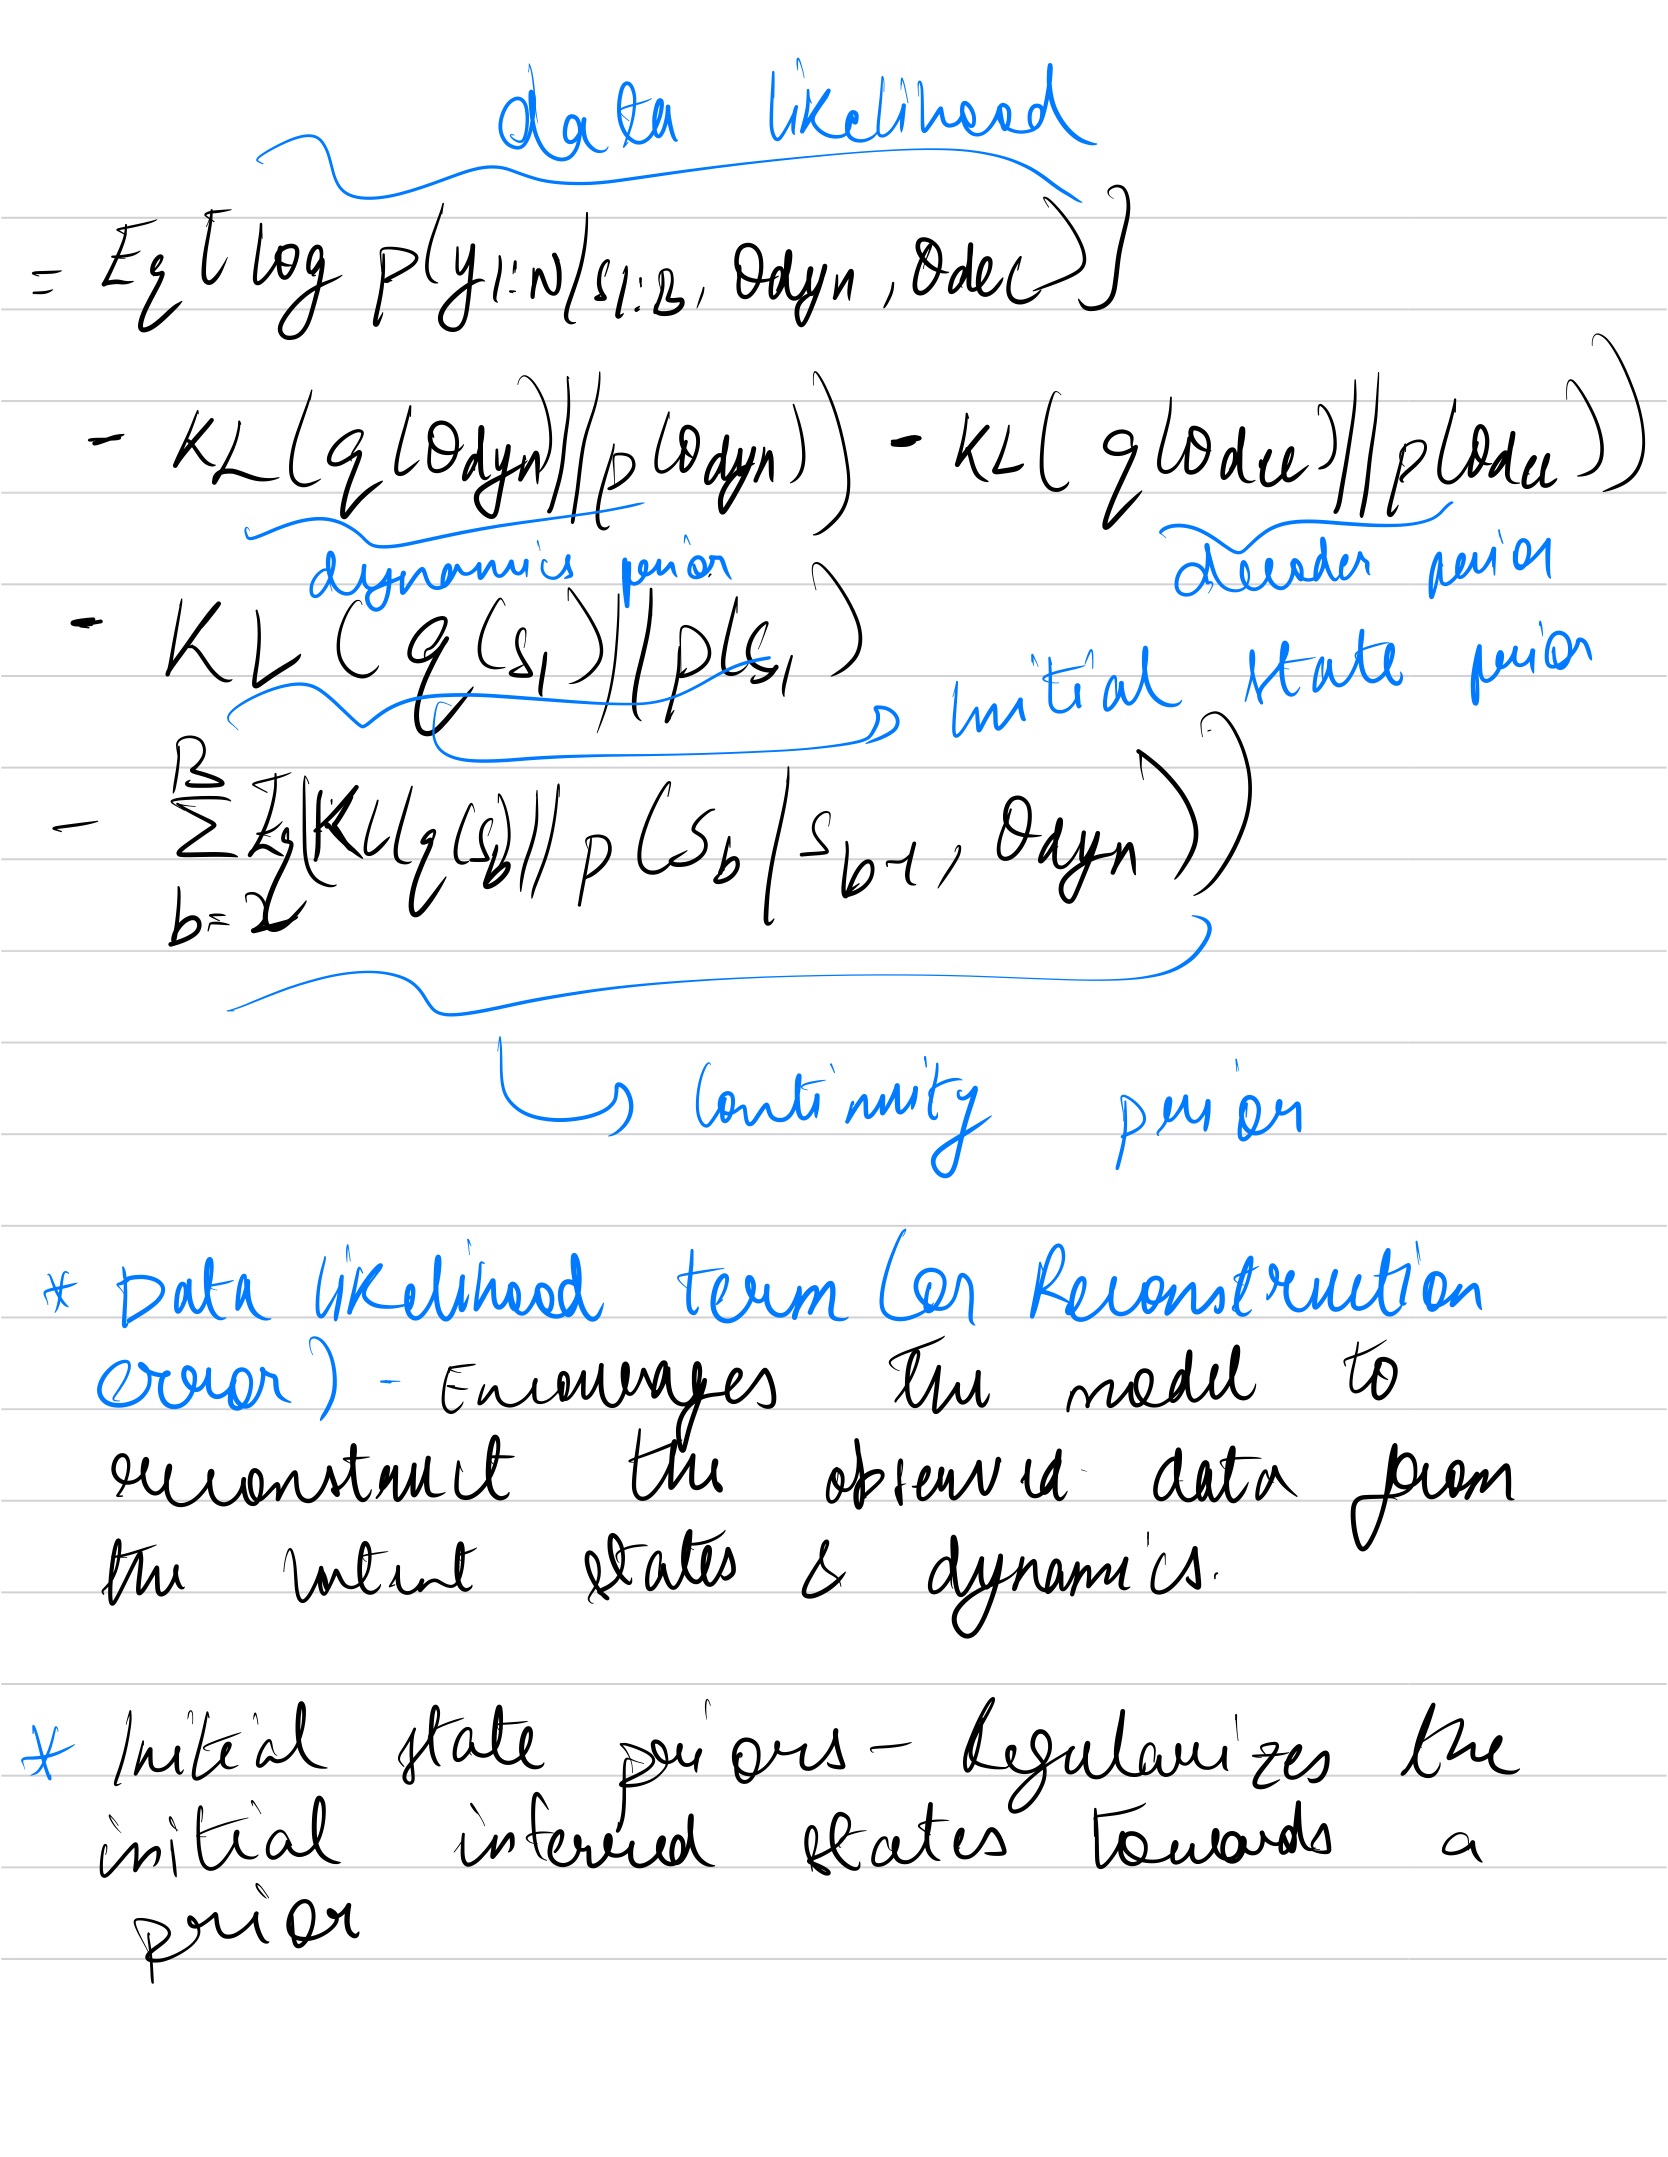 data likelihood
= Eq [log p(y1:N/s1:B, θdyn, θdec)]
- KL(q(θdyn)||p(θdyn)) - KL(q(θdec)||p(θdec))
dynamics prior decoder prior
- KL(q(s1)||p(s1) initial state prior
B
- Σ Eq(KL(q(sb)||p(sb/sb-1, θdyn))
b=2
continuity prior
* Data likelihood term (or Reconstruction
error) - Encourages the model to
reconstruct the observed data from
the latent states & dynamics.
* Initial state priors - Regularizes the
initial inferred states towards a
prior